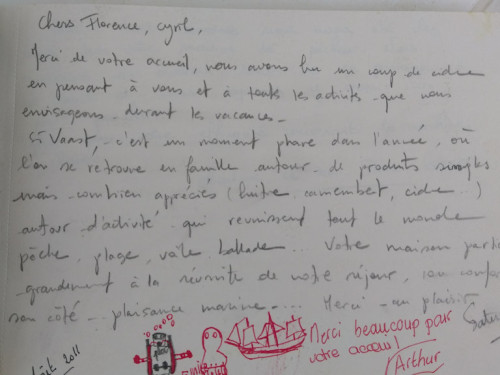 Chers Florence, Cyril,
Merci de votre accueil, nous avons bu un coup de cidre
en pensant à vous et à touts les activités que nous
envisageons durant les vacances.
St Vaast, c'est un moment phare dans l'année, où
l'on se retrouve en famille autour de produits simples
mais combien appréciés (huître, camembert, cidre...)
autour d'activité qui reunissent tout le monde
pêche, plage, voile, ballade... Votre maison parti
grandement à la réussite de notre séjour, son confor
son côté plaisance marine.... Merci au plaisir
Merci beaucoup par
votre accueil
Arthur
2011